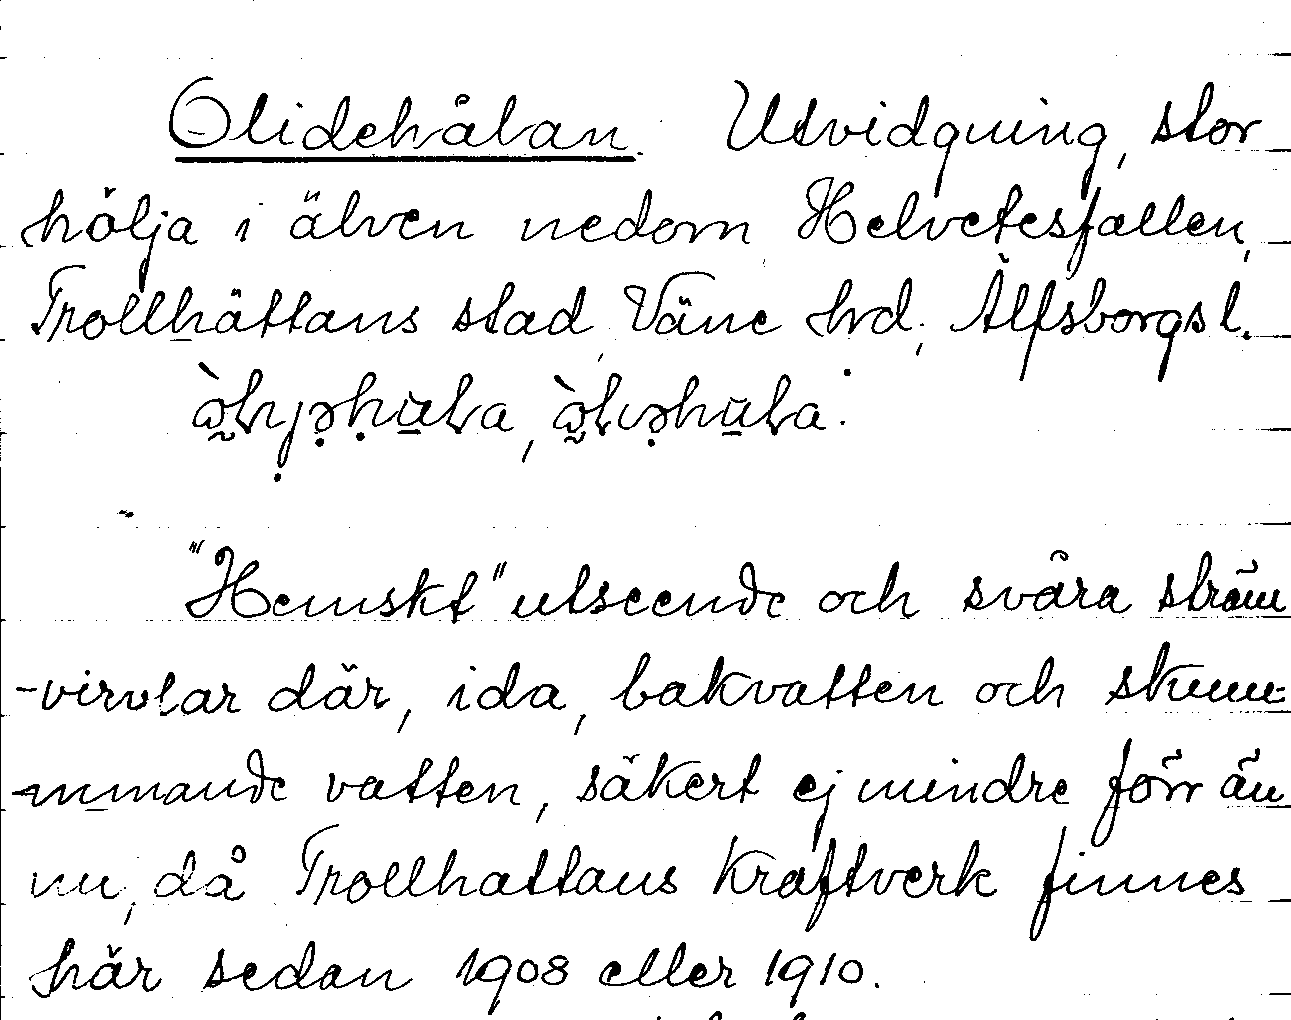 Olidehålan. Utvidgning, stor
hölja i älven nedom Helvetesfallen,
Trollhättans stad, Väne hrd, Älfsborgs l.
"Hemskt" utseende och svåra ström
-virvlar där, ida, bakvatten och skum-
-mmande vatten, säkert ej mindre förr än
nu, då Trollhattans Kraftverk finnes
här sedan 1908 eller 1910.